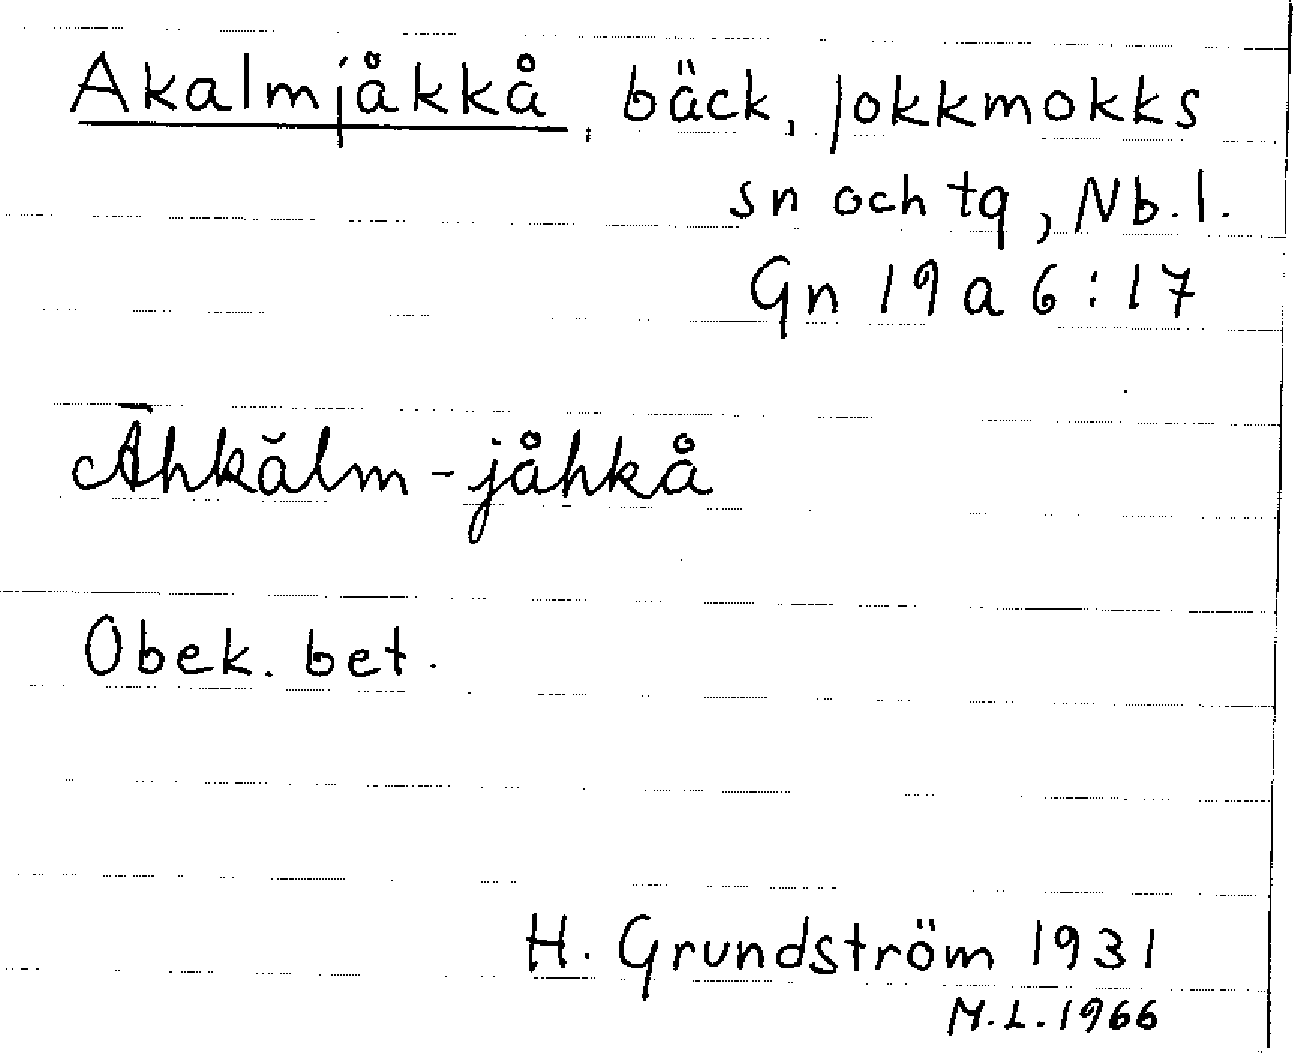 Akalmjåkkå, bäck, Jokkmokks
sn och tg, Nb.l.
Gn 19 a 6:17
Āhkălm-jåhkå
Obek. bet.
H. Grundström 1931
M.L. 1966